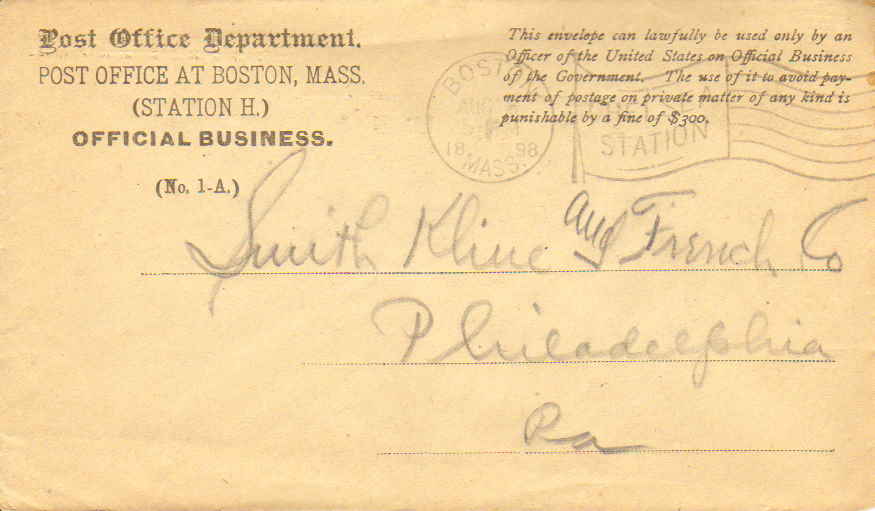 Post Office Department.
POST OFFICE AT BOSTON, MASS.
(STATION H.)
OFFICIAL BUSINESS.
(No. 1-A.)
This envelope can lawfully be used only by an
Officer of the United States on Official Business
of the Government. The use of it to avoid pay-
ment of postage on private matter of any kind is
punishable by a fine of $300.
BOSTON
AUG
1898
MASS.
STATION
Smith Kline and French Co
Philadelphia
Pa